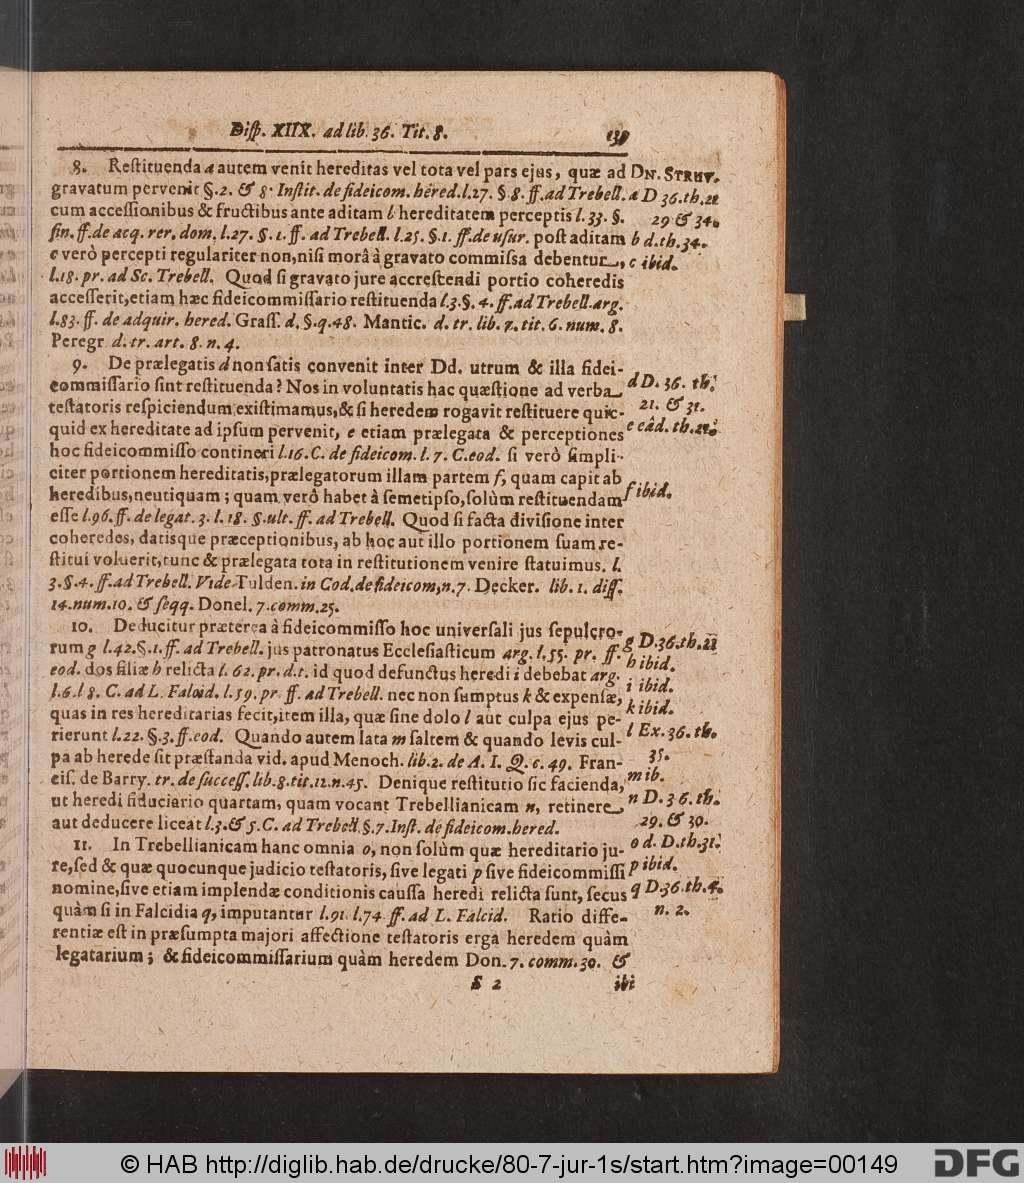 Disp. XIIX. ad lib. 36. Tit. 8. 139
8. Restituenda a autem venit hereditas vel tota vel pars ejus, quæ ad
gravatum pervenit §. 2. & 8. Instit. de fideicom. hered. l. 27. §. 8. ff. ad Trebell.
cum accessionibus & fructibus ante aditam b hereditatem perceptis l. 33. §.
fin. ff. de acq. rer. dom. l. 27. §. 1. ff. ad Trebell. l. 25. §. 1. ff. de usur. post aditam
c verò percepti regulariter non, nisi morâ à gravato commissa debentur,
l. 18. pr. ad Sc. Trebell. Quod si gravato jure accrestendi portio coheredis
accesserit, etiam hæc fideicommissario restituenda l. 3. §. 4. ff. ad Trebell. arg.
l. 83. ff. de adquir. hered. Grass. d. §. q. 48. Mantic. d. tr. lib. 7. tit. 6. num. 8.
Peregr d. tr. art. 8. n. 4.
9. De prælegatis d non satis convenit inter Dd. utrum & illa fidei-
commissario sint restituenda? Nos in voluntatis hac quæstione ad verba
testatoris respiciendum existimamus, & si heredem rogavit restituere quic-
quid ex hereditate ad ipsum pervenit, e etiam prælegata & perceptiones
hoc fideicommisso contineri l. 16. C. de fideicom. l. 7. C. eod. si verò simpli-
citer portionem hereditatis, prælegatorum illam partem f, quam capit ab
heredibus, neutiquam; quam verò habet à semetipso, solùm restituendam
esse l. 96. ff. de legat. 3. l. 18. §. ult. ff. ad Trebell. Quod si facta divisione inter
coheredes, datisque præceptionibus, ab hoc aut illo portionem suam re-
stitui voluerit, tunc & prælegata tota in restitutionem venire statuimus. l.
3. §. 4. ff. ad Trebell. Vide Tulden. in Cod. de fideicom, n. 7. Decker. lib. 1. diss.
14. num. 10. & seqq. Donel. 7. comm. 25.
10. Deducitur præterea à fideicommisso hoc universali jus sepulcro-
rum g l. 42. §. 1. ff. ad Trebell. jus patronatus Ecclesiasticum arg. l. 55. pr. ff.
eod. dos filiæ h relicta l. 62. pr. d. t. id quod defunctus heredi i debebat arg.
l. 6. l 8. C. ad L. Falcid. l. 59. pr. ff. ad Trebell. nec non sumptus k & expensæ,
quas in res hereditarias fecit, item illa, quæ sine dolo l aut culpa ejus pe-
rierunt l. 22. §. 3. ff. eod. Quando autem lata m saltem & quando levis cul-
pa ab herede sit præstanda vid. apud Menoch. lib. 2. de A. I. Q. c. 49. Fran-
cis. de Barry. tr. de success. lib. 8. tit. 12. n. 45. Denique restitutio sic facienda,
ut heredi fiduciario quartam, quam vocant Trebellianicam n, retinere,
aut deducere liceat l. 3. & 5. C. ad Trebell. §. 7. Inst. de fideicom. hered.
11. In Trebellianicam hanc omnia o, non solùm quæ hereditario ju-
re, sed & quæ quocunque judicio testatoris, sive legati p sive fideicommissi
nomine, sive etiam implendæ conditionis caussa heredi relicta sunt, secus
quàm si in Falcidia q, imputantur l. 91. l. 74. ff. ad L. Falcid. Ratio diffe-
rentiæ est in præsumpta majori affectione testatoris erga heredem quàm
legatarium; & fideicommissarium quàm heredem Don. 7. comm. 30. &
S 2 ibi
DN. STRUV.
a D 36. th. 21
29 & 34.
b d. th. 34.
c ibid.
d D. 36. th.
21. & 31.
e ead. th. 21.
f ibid.
g D. 36. th. 21
h ibid.
i ibid.
k ibid.
l Ex. 36. th.
35.
m ib.
n D. 36. th.
29. & 30.
o d. D. th. 31.
p ibid.
q D. 36. th. 4.
n. 2.
© HAB http://diglib.hab.de/drucke/80-7-jur-1s/start.htm?image=00149
DFG